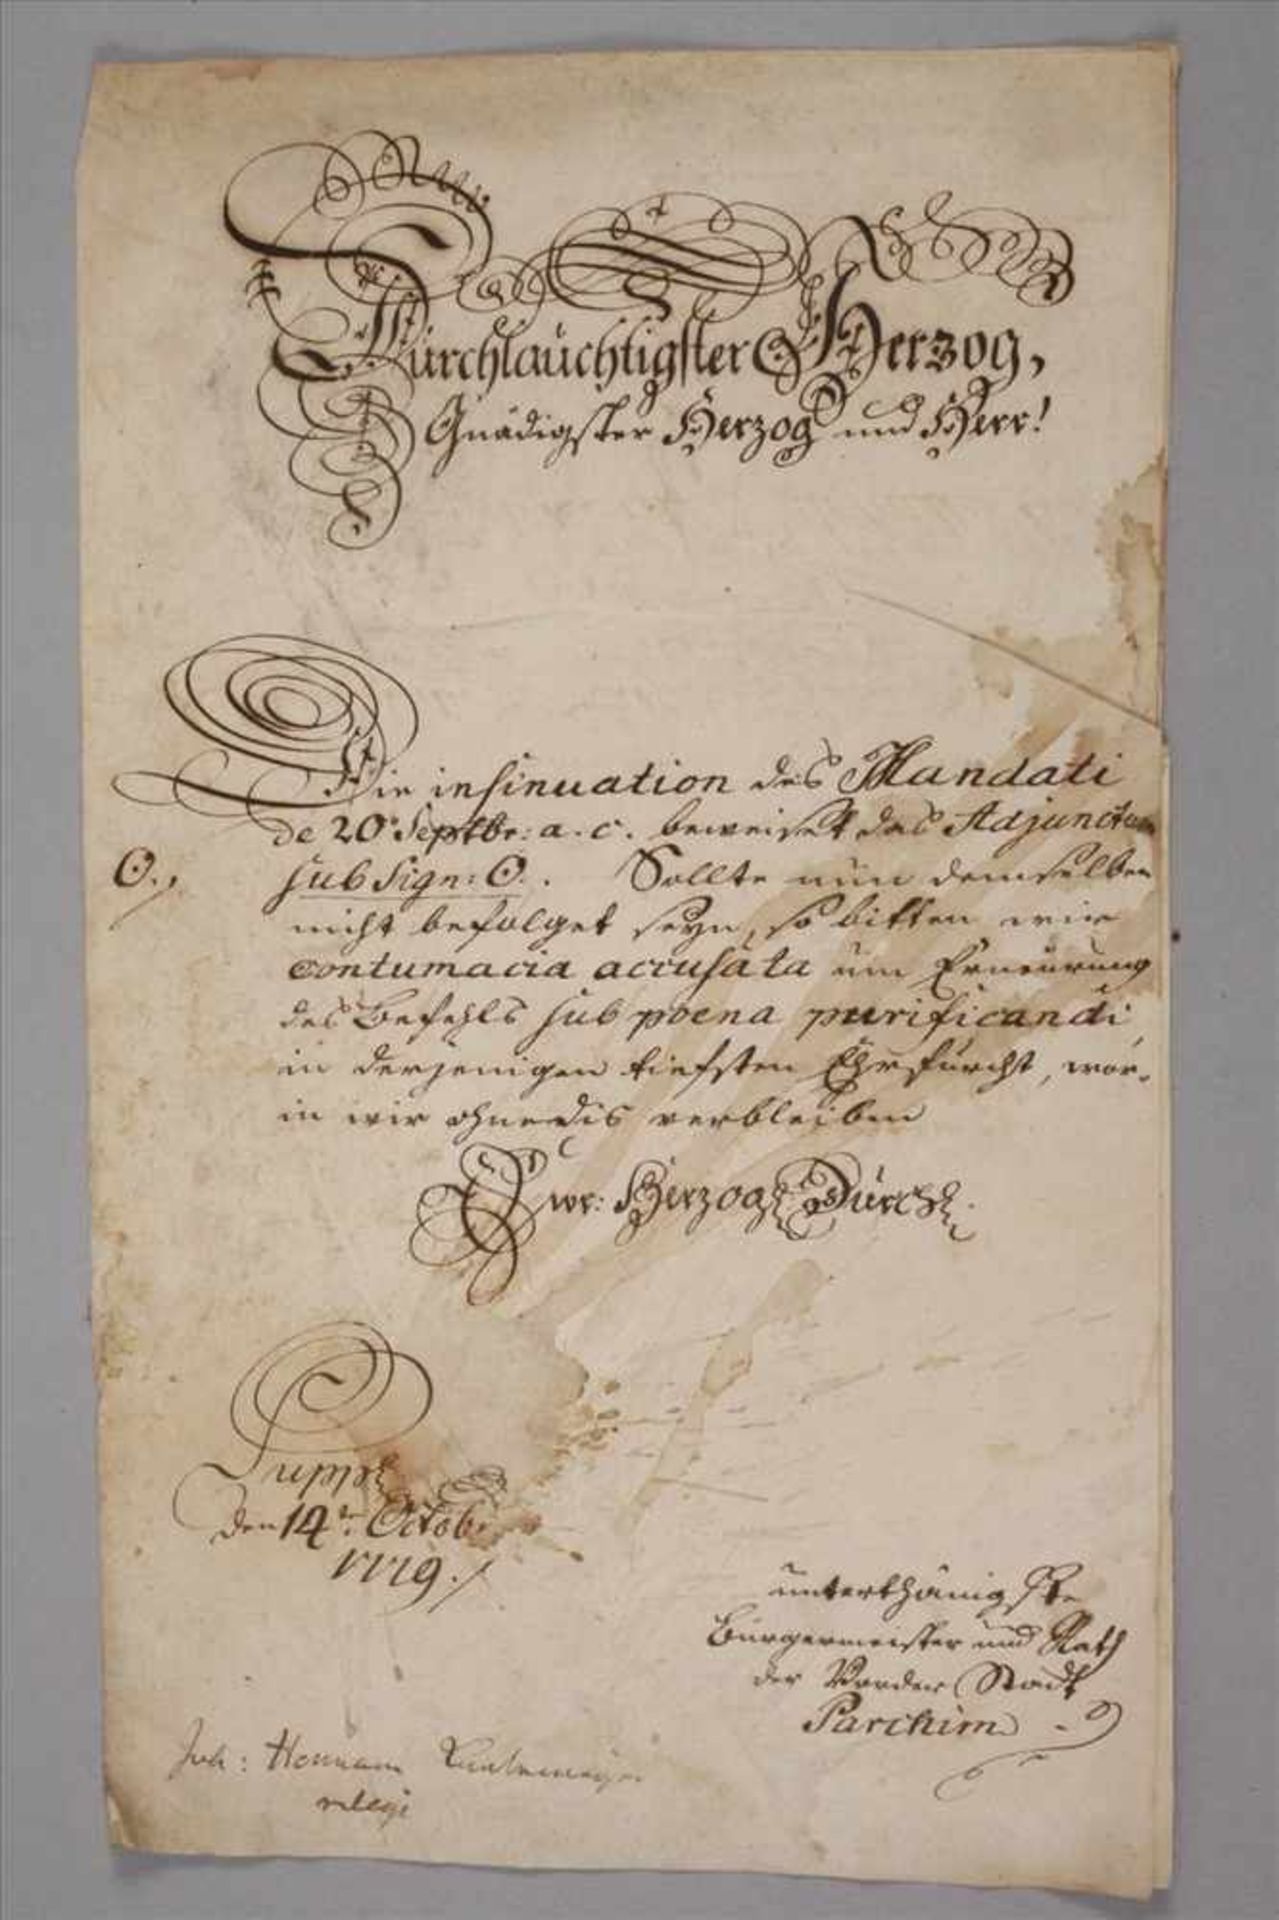 Dürchläuchtigster Herzog,
Gnädigster Herzog und Herr!
Die insinuation des Mandati
de 20. Septbr: a. c. beweiset das Adjunctum
O., sub sign: O. Sollte nun demselben
nicht befolget seyn, so bitten wir
contumacia accusata üm Erneürung
des Befehls sub poena purificandi
in derjenigen tiefsten Ehrfürcht, wor-
in wir ohnedis verbleiben
Ewr: Herzogl Dürchl.
Suppl
den 14ten Octobr
unterthänigste
Bürgermeister und Rath
der Vorder Stadt
Parchim
Joh: Hermann
relegi